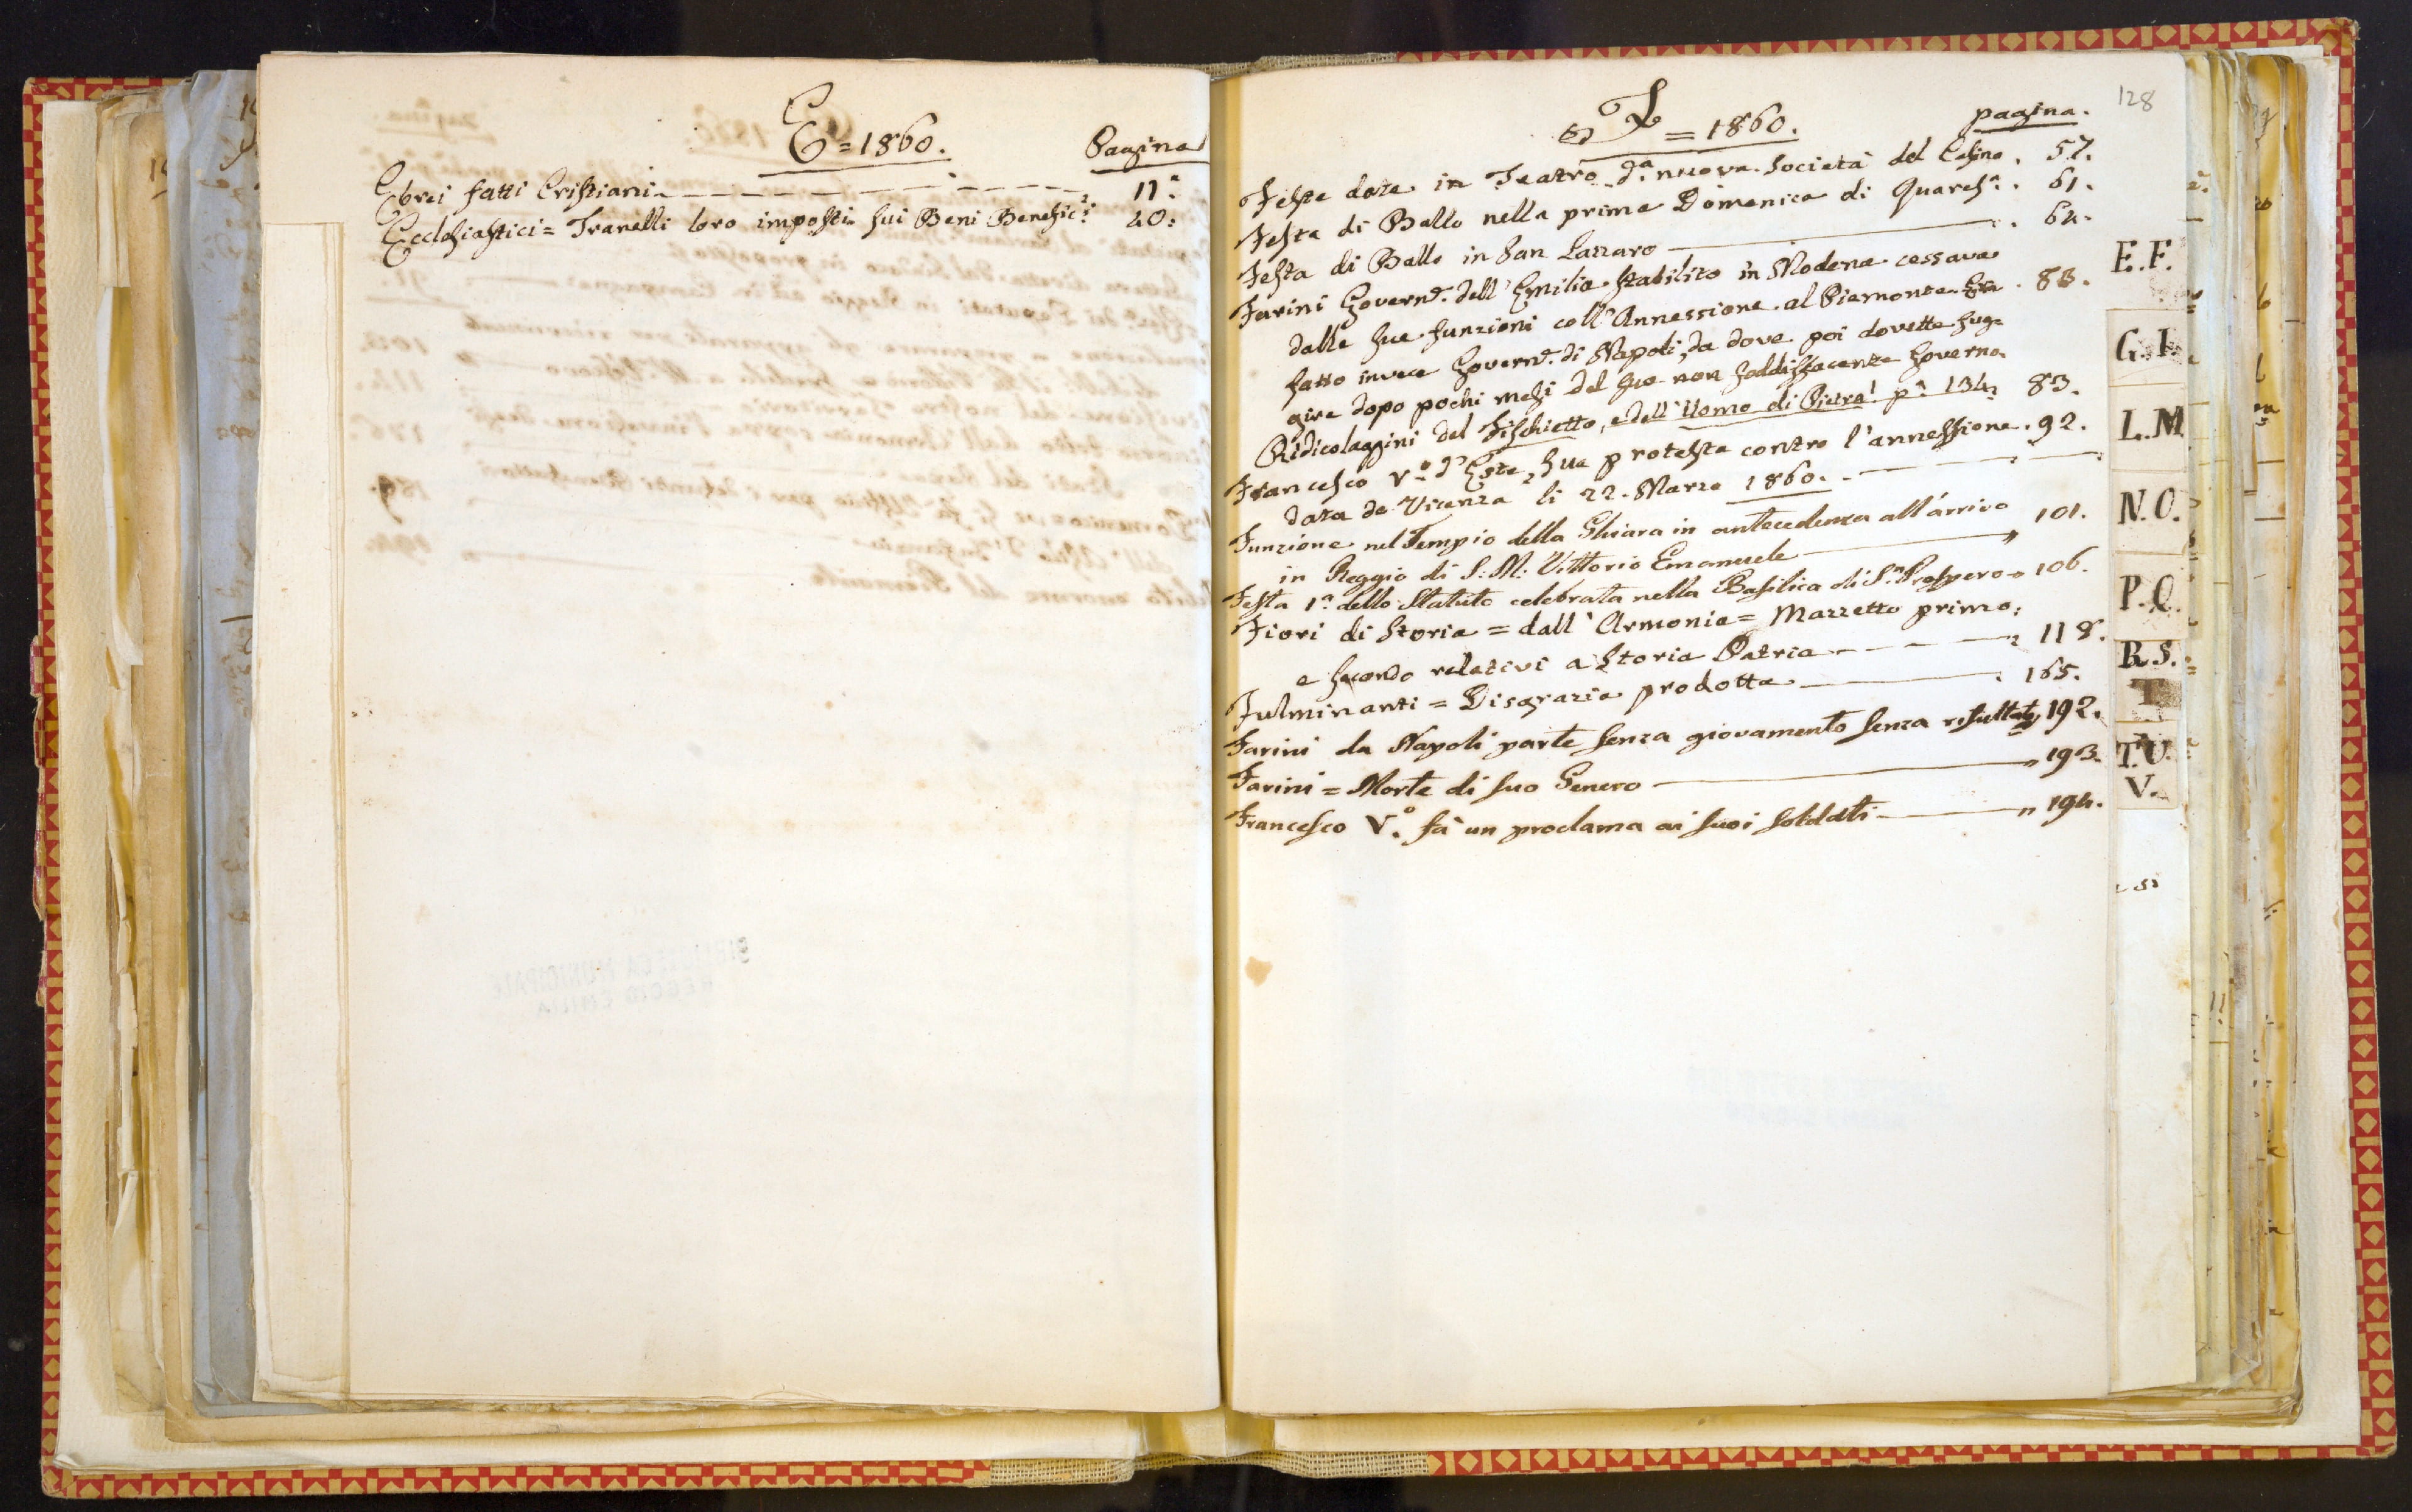 E = 1860.
Pagina
Ebrei fatti Cristiani 11.
Ecclesiastici = Tranelli loro imposti sui Beni Benefic.i 40.
128
F = 1860.
pagina.
Feste date in Teatro d.a nuova Società del Casino. 57.
Festa di Ballo nella prima Domenica di Quares.a. 61.
Festa di Ballo in San Lazzaro 64.
Farini Govern.e dell'Emilia stabilito in Modena cessava
dalle sue funzioni coll'Annessione al Piemonte. 83.
fatto invece Govern.e di Napoli, da dove poi dovette fug=
gire dopo pochi mesi del suo non soddisfacente Governo.
Ridicolaggini del Fischietto, e dell'Uomo di Pietra! p.a 134. 83.
Francesco V.o d'Este, sua protesta contro l'annessione. 92.
data da Vicenza li 22. Marzo 1860.
Funzione nel Tempio della Ghiara in antecedenza all'arrivo 101.
in Reggio di S. M. Vittorio Emanuele "
Festa 1.a dello Statuto celebrata nella Basilica di S.n Prospero " 106.
Fiori di Storia = dall'Armonia = Mazzetto primo,
e secondo relativi a Storia Patria 118.
Fulminanti = Disgrazia prodotta 165.
Farini da Napoli parte senza giovamento senza resultato, 192.
Farini = Morte di suo Genero " 193.
Francesco V.o fà un proclama ai suoi soldati " 194.
E.F.
G.I.
L.M
N.O.
P.Q.
R.S.
T
T.U.
V.
BIBLIOTECA MUNICIPALE
REGGIO EMILIA